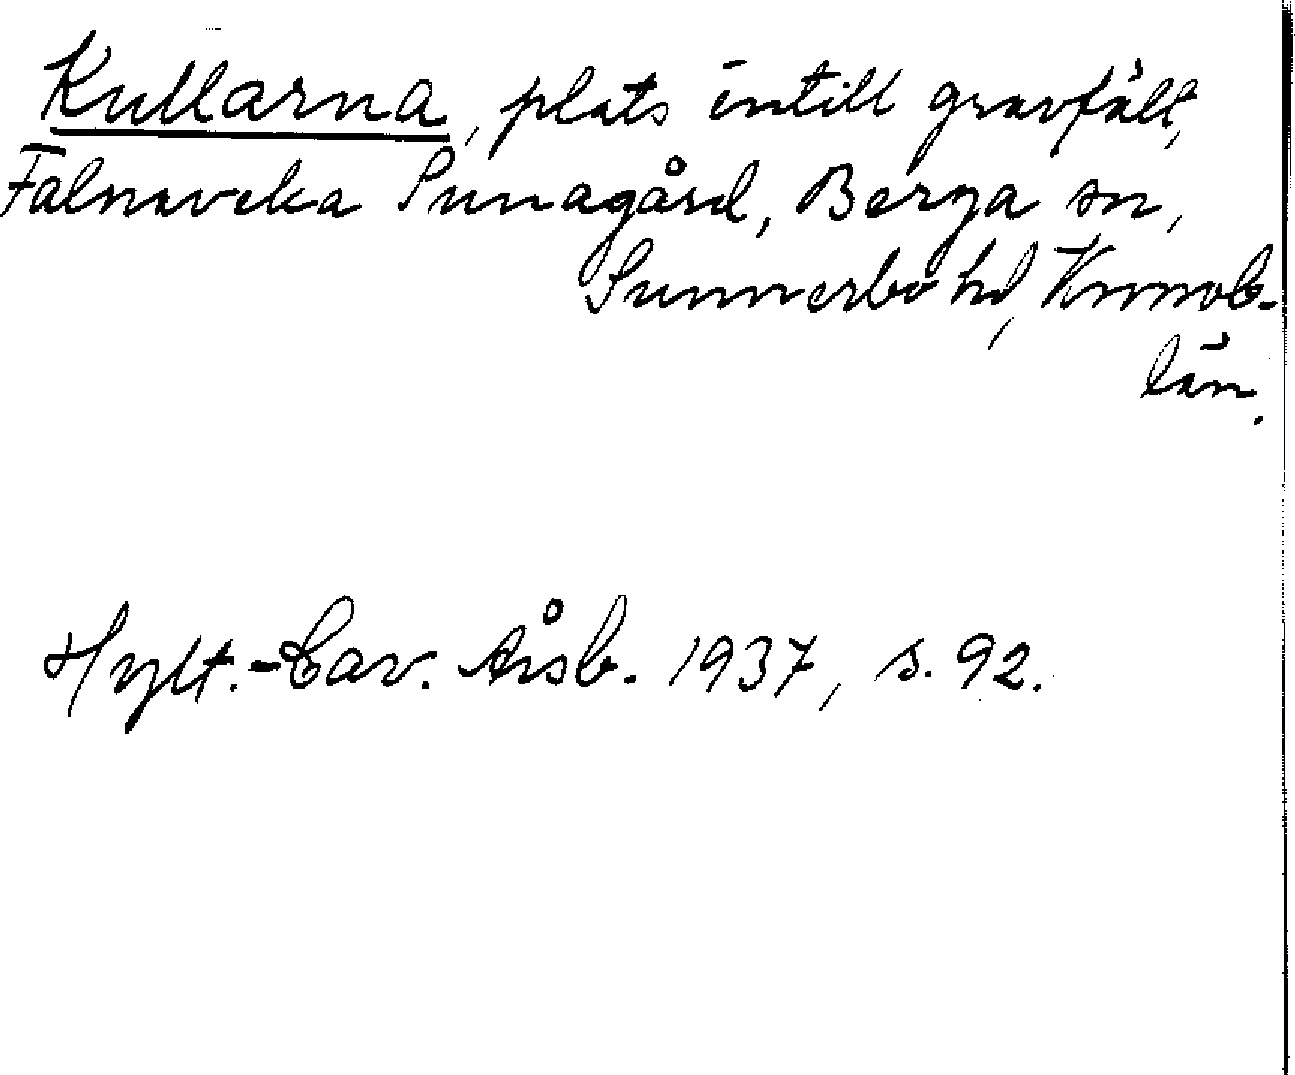 Kullarna, plats intill gravfält,
Falnaveka Sunagård, Berga sn,
Sunnerbo hd, Kronob.
län.
Hylt.-Cav. Årsb. 1937, s. 92.